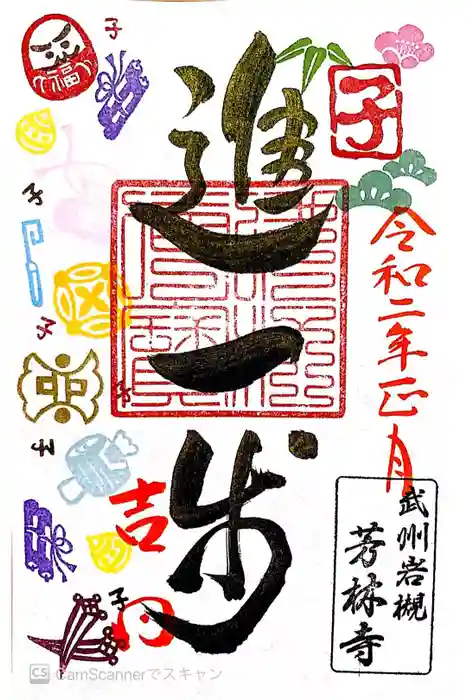 子
令和二年正月
進一歩
武州岩槻
芳林寺
子
福
子
子
子
子
吉
子
CS CamScannerでスキャン